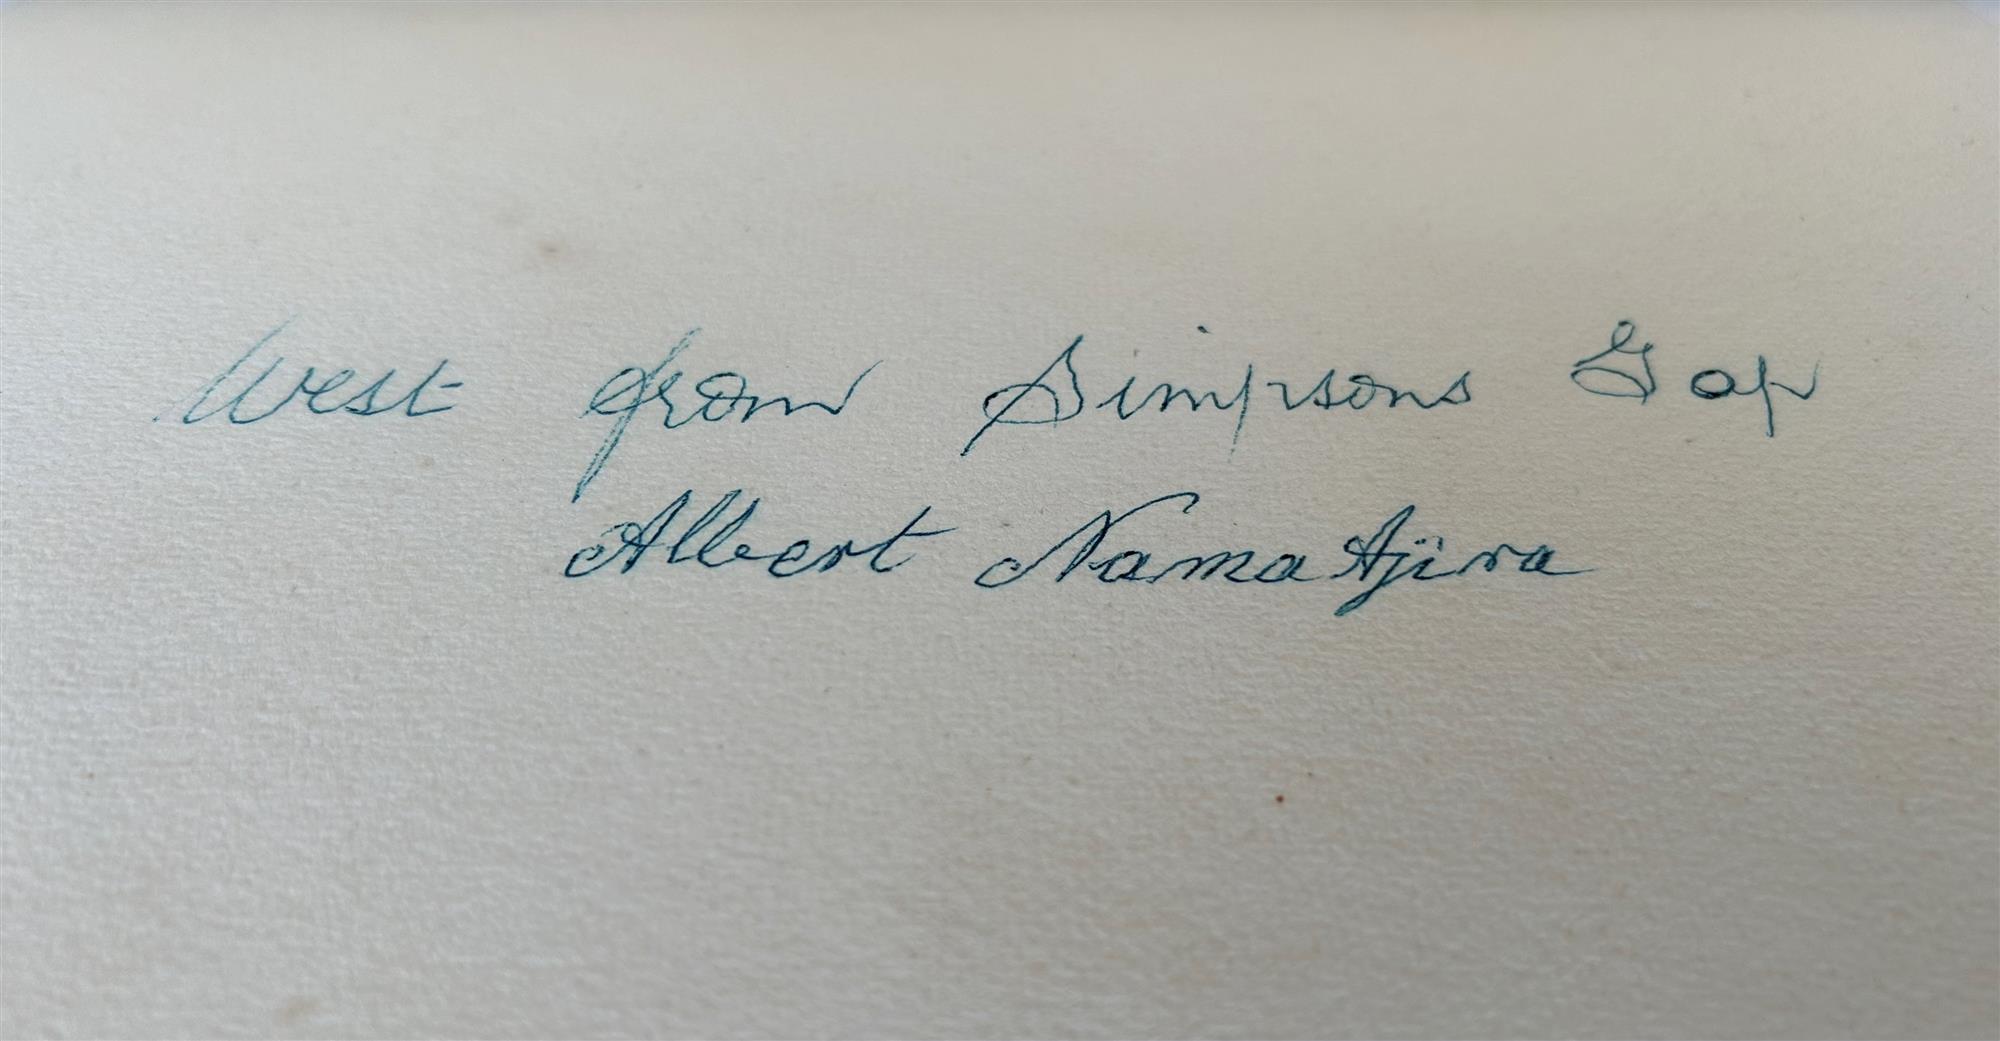 West from Simpsons Gap
Albert Namatjira